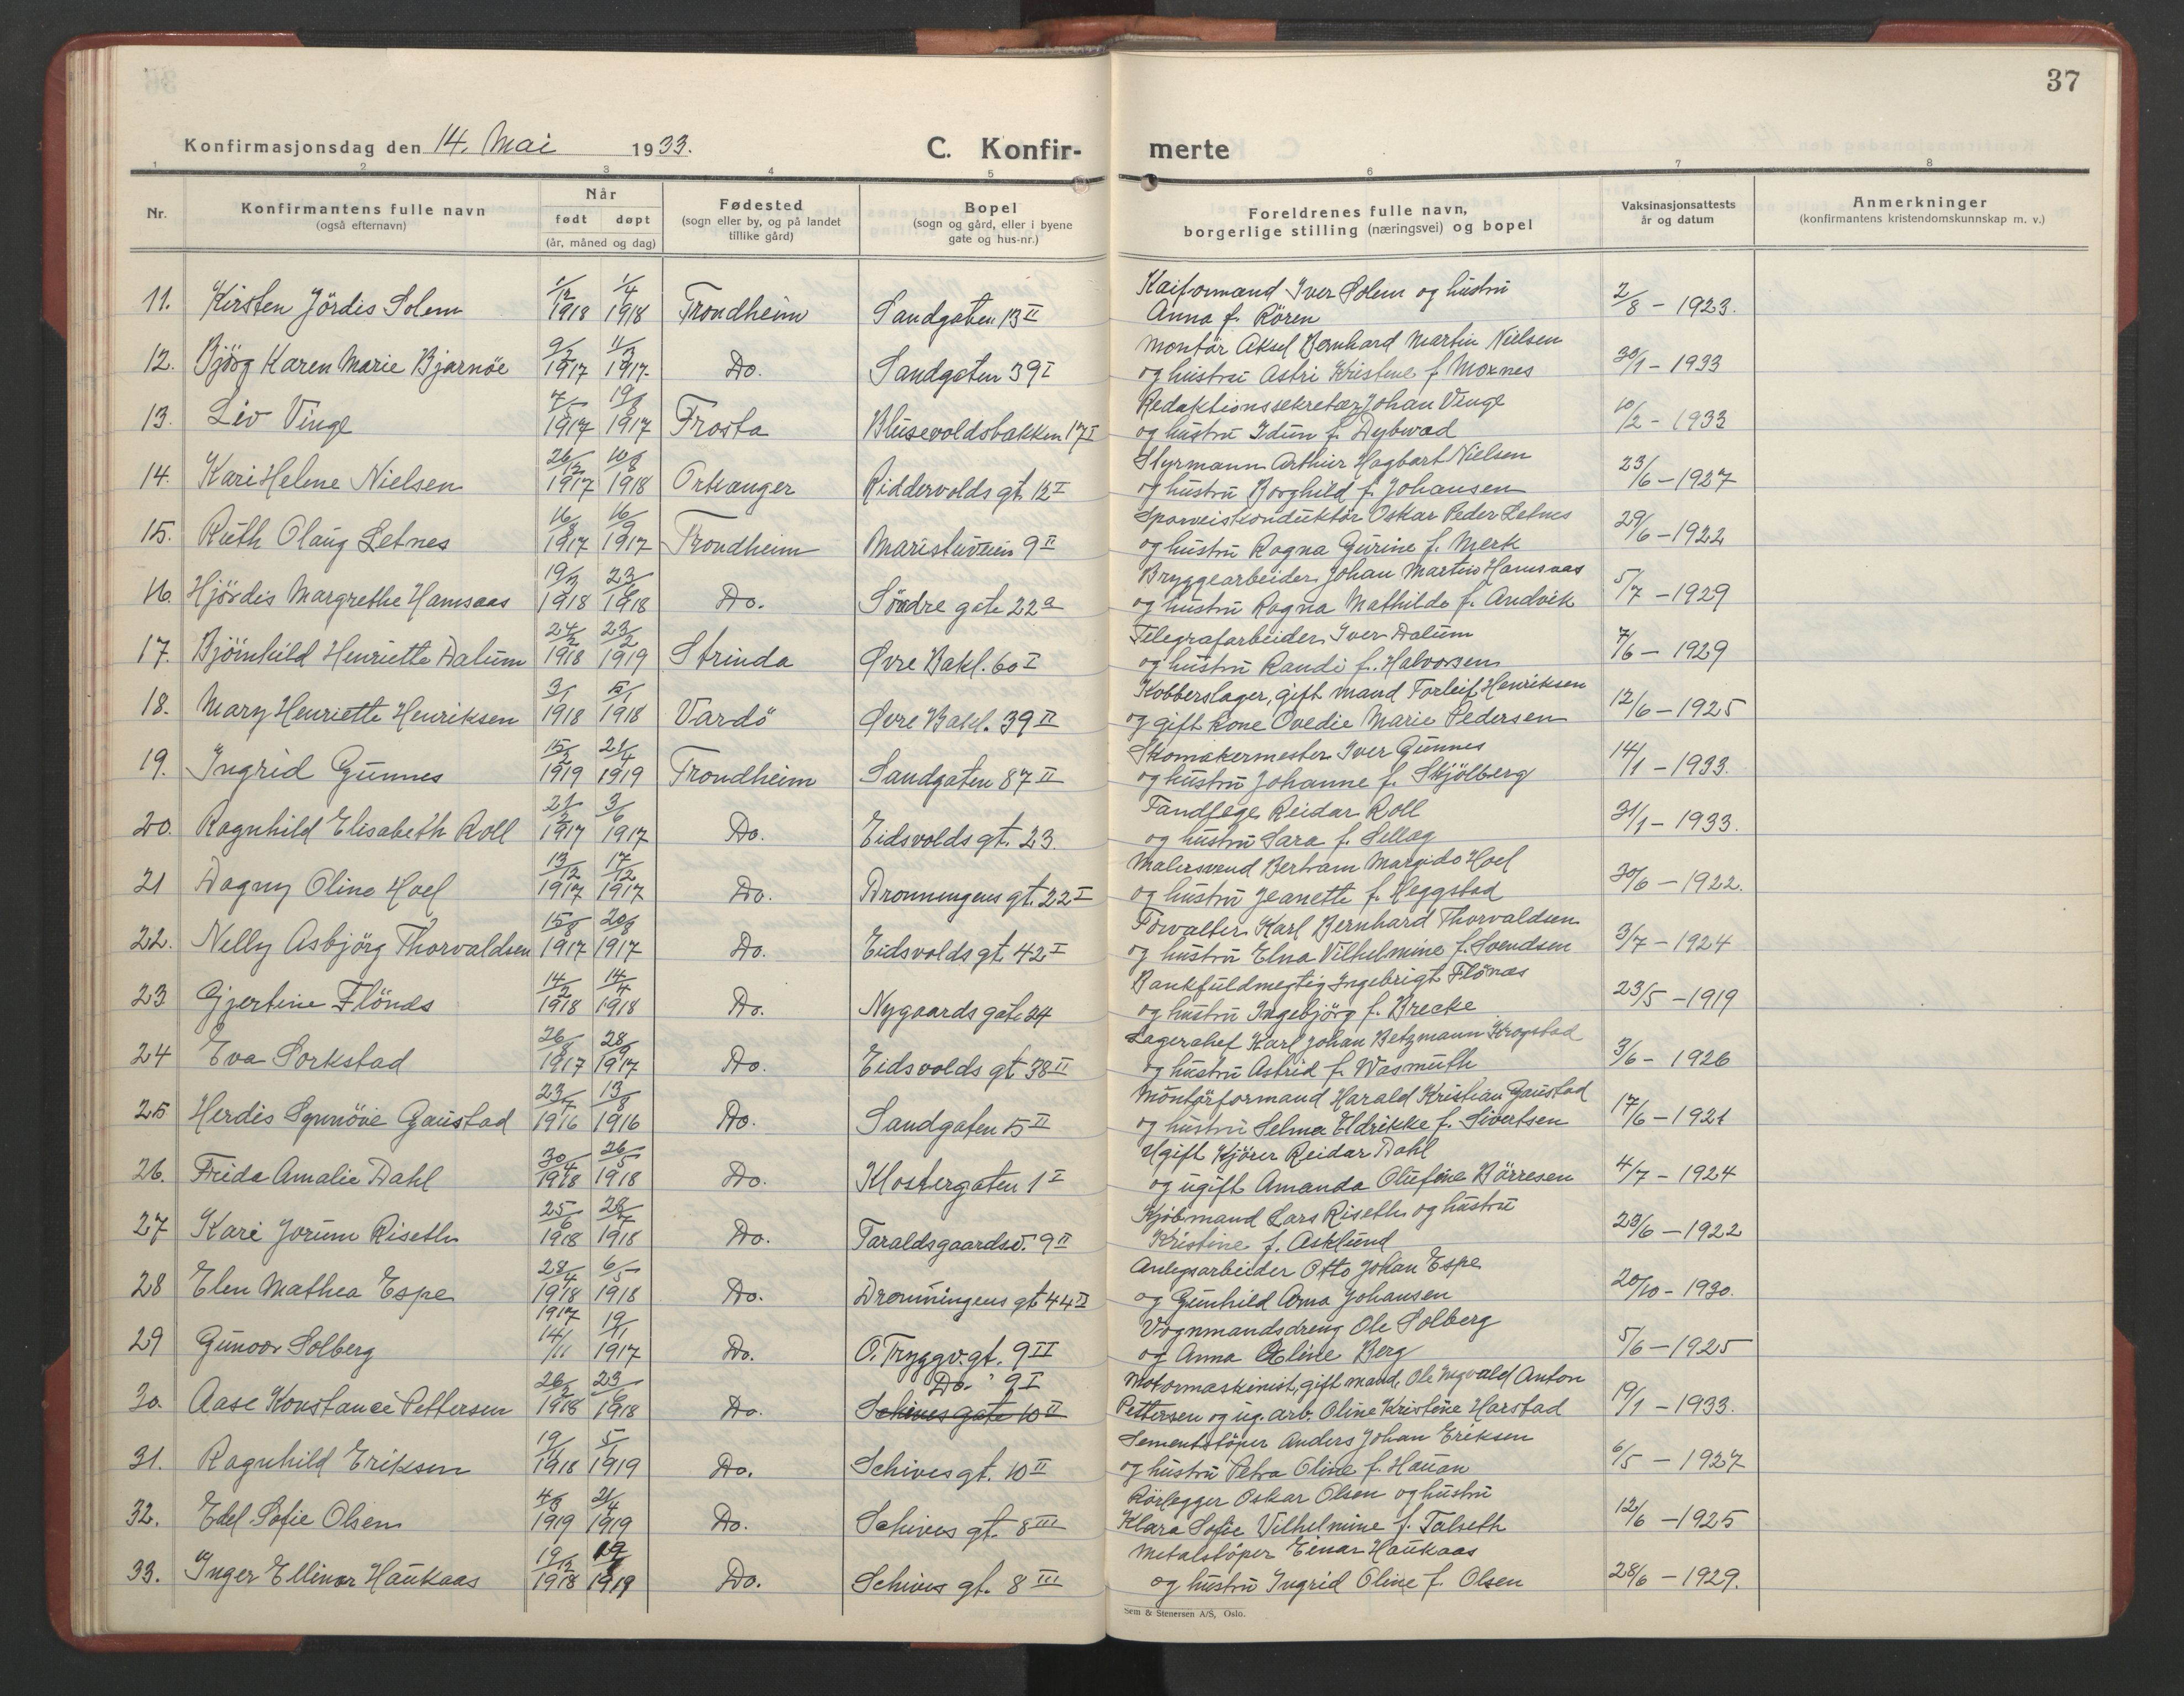 37
Konfirmasjonsdag den 14. Mai 1933. C. Konfir- merte
1 2 3 4 5 6 7 8
Nr. Konfirmantens fulle navn (også efternavn) Når født døpt (år, måned og dag) Fødested (sogn eller by, og på landet tillike gård) Bopel (sogn og gård, eller i byene gate og hus-nr.) Foreldrenes fulle navn, borgerlige stilling (næringsvei) og bopel Vaksinasjonsattests år og datum Anmerkninger (konfirmantens kristendomskunnskap m. v.)
11. Kirsten Jördis Solem 1918 1/4 1918 Trondheim Sandgaten 13 II Kaiformand Iver Solem og hustru
Anna f. Rören 2/8 - 1923.
12. Bjørg Karen Marie Bjarnöe 1917 1917 Do. Sandgaten 39 I Montör Aksel Bernhard Martin Nielsen
og hustru Astri Kristine f. Moxnes 30/1 - 1933
13. Liv Vinge 1917 1917 Frosta Blusevoldsbakken 17 I Redaktionssekretær Johan Vinge
og hustru Idun f. Dybwad 10/2 - 1933
14. Kari Helene Nielsen 26/12 1917 10/8 1918 Orkanger Riddervolds gt. 12 I Styrmann Arthur Hagbart Nielsen
og hustru Borghild f. Johansen 23/6 - 1927
15. Ruth Olaug Letnes 16/8 1917 16/9 1917 Trondheim Maristuveien 9 II Sporveiskonduktör Oskar Peder Letnes
og hustru Ragna Gurine f. Merk 29/6 - 1922
16. Hjördis Margrethe Hamsaas 19/3 1918 23/6 1918 Do. Söndre gate 22a Bryggearbeider Johan Martin Hamsaas
og hustru Ragna Mathilde f. Andvik 5/7 - 1929
17. Björnhild Henriette Dalum 24/2 1918 23/2 1919 Strinda Øvre Bakl. 60 I Telegrafarbeider Iver Dalum
og hustru Randi f. Halvorsen 7/6 - 1929
18. Mary Henriette Henriksen 3/1 1918 5/1 1918 Vardö Øvre Bakl. 39 II Kobberslager, gift mand Torleif Henriksen
og gift kone Ovedie Marie Pedersen 12/6 - 1925
19. Ingrid Gunnes 15/2 1919 21/4 1919 Trondheim Sandgaten 87 II Skomakermester Iver Gunnes
og hustru Johanne f. Skjölberg 14/1 - 1933.
20. Ragnhild Elisabeth Roll 21/2 1917 3/6 1917 Do. Eidsvolds gt. 23. Tandlege Reidar Roll
og hustru Sara f. Sellæg 31/1 - 1933.
21 Dagny Oline Hoel 13/12 1917 17/12 1917 Do. Dronningens gt. 22 I Malersvend Bertram Margido Hoel
og hustru Jeanette f. Heggstad 30/6 - 1922.
22. Nelly Asbjörg Thorvaldsen 15/8 1917 20/8 1917 Do. Eidsvolds gt. 42 I Forvalter Karl Bernhard Thorvaldsen
og hustru Elna Vilhelmine f. Svendsen 3/7 - 1924
23 Gjertine Flönæs 14/2 1918 14/4 1918 Do. Nygaards gate 24 Bankfuldmegtig Ingebrigt Flönæs
og hustru Ingebjörg f. Brecke 23/5 - 1919
24 Eva Sorkstad 26/8 1917 28/9 1917 Do. Eidsvolds gt 38 II Lagerchef Karl Johan Betzmann Krogstad
og hustru Astrid f. Wasmuth 3/6 - 1926
25 Herdis Synnöve Gaustad 23/7 1916 13/8 1916 Do. Sandgaten 15 II Montörformand Harald Kristian Gaustad
og hustru Selma Eldrikke f. Sivertsen 17/6 - 1921
26. Frida Amalie Dahl 30/4 1918 26/5 1918 Do. Klostergaten 1 I Ugift Kjörer Reidar Dahl
og ugift Amanda Olufine Börresen 4/7 - 1924
27 Kari Jorum Riseth 25/6 1918 28/7 1918 Do. Taraldsgaardsv. 9 II Kjöbmand Lars Riseth og hustru
Kristine f. Asklund 23/6 - 1922
28 Elen Mathea Espe 28/4 1918 6/5 1918 Do. Dronningens gt 44 II Anlegsarbeider Otto Johan Espe
og Gunhild Arna Johansen 20/10 - 1930.
29 Gunvor Solberg 1917 14/11 19/11 1917 Do. O. Tryggv. gt. 9 II Vognmandsdreng Ole Solberg
og Anna Eline Berg 5/6 - 1925
30. Aase Konstance Pettersen 26/2 1918 23/6 1918 Do. Do. " 9 I
Schives gate 10 II Motormaskinist, gift mand, Ole Ingvald Anton
Pettersen og ug. arb. Oline Kristine Harstad 19/1 - 1933.
31. Ragnhild Eriksen 19/11 1918 5/1 1919 Do. Schives gt. 10 II Sementstöper Anders Johan Eriksen
og hustru Petra Oline f. Hauan 6/5 - 1927
32. Edel Sofie Olsen 4/3 1919 21/4 1919 Do. Schives gt. 8 III Rörlegger Oskar Olsen og hustru
Klara Sofie Vilhelmine f. Talseth 12/6 - 1925
33. Inger Ellinor Haukaas 19/12 1918 1919 Do. Schives gt. 8 III Metalstöper Einar Haukaas
og hustru Ingrid Oline f. Olsen 28/6 - 1929.
Sem & Stenersen A/S, Oslo.